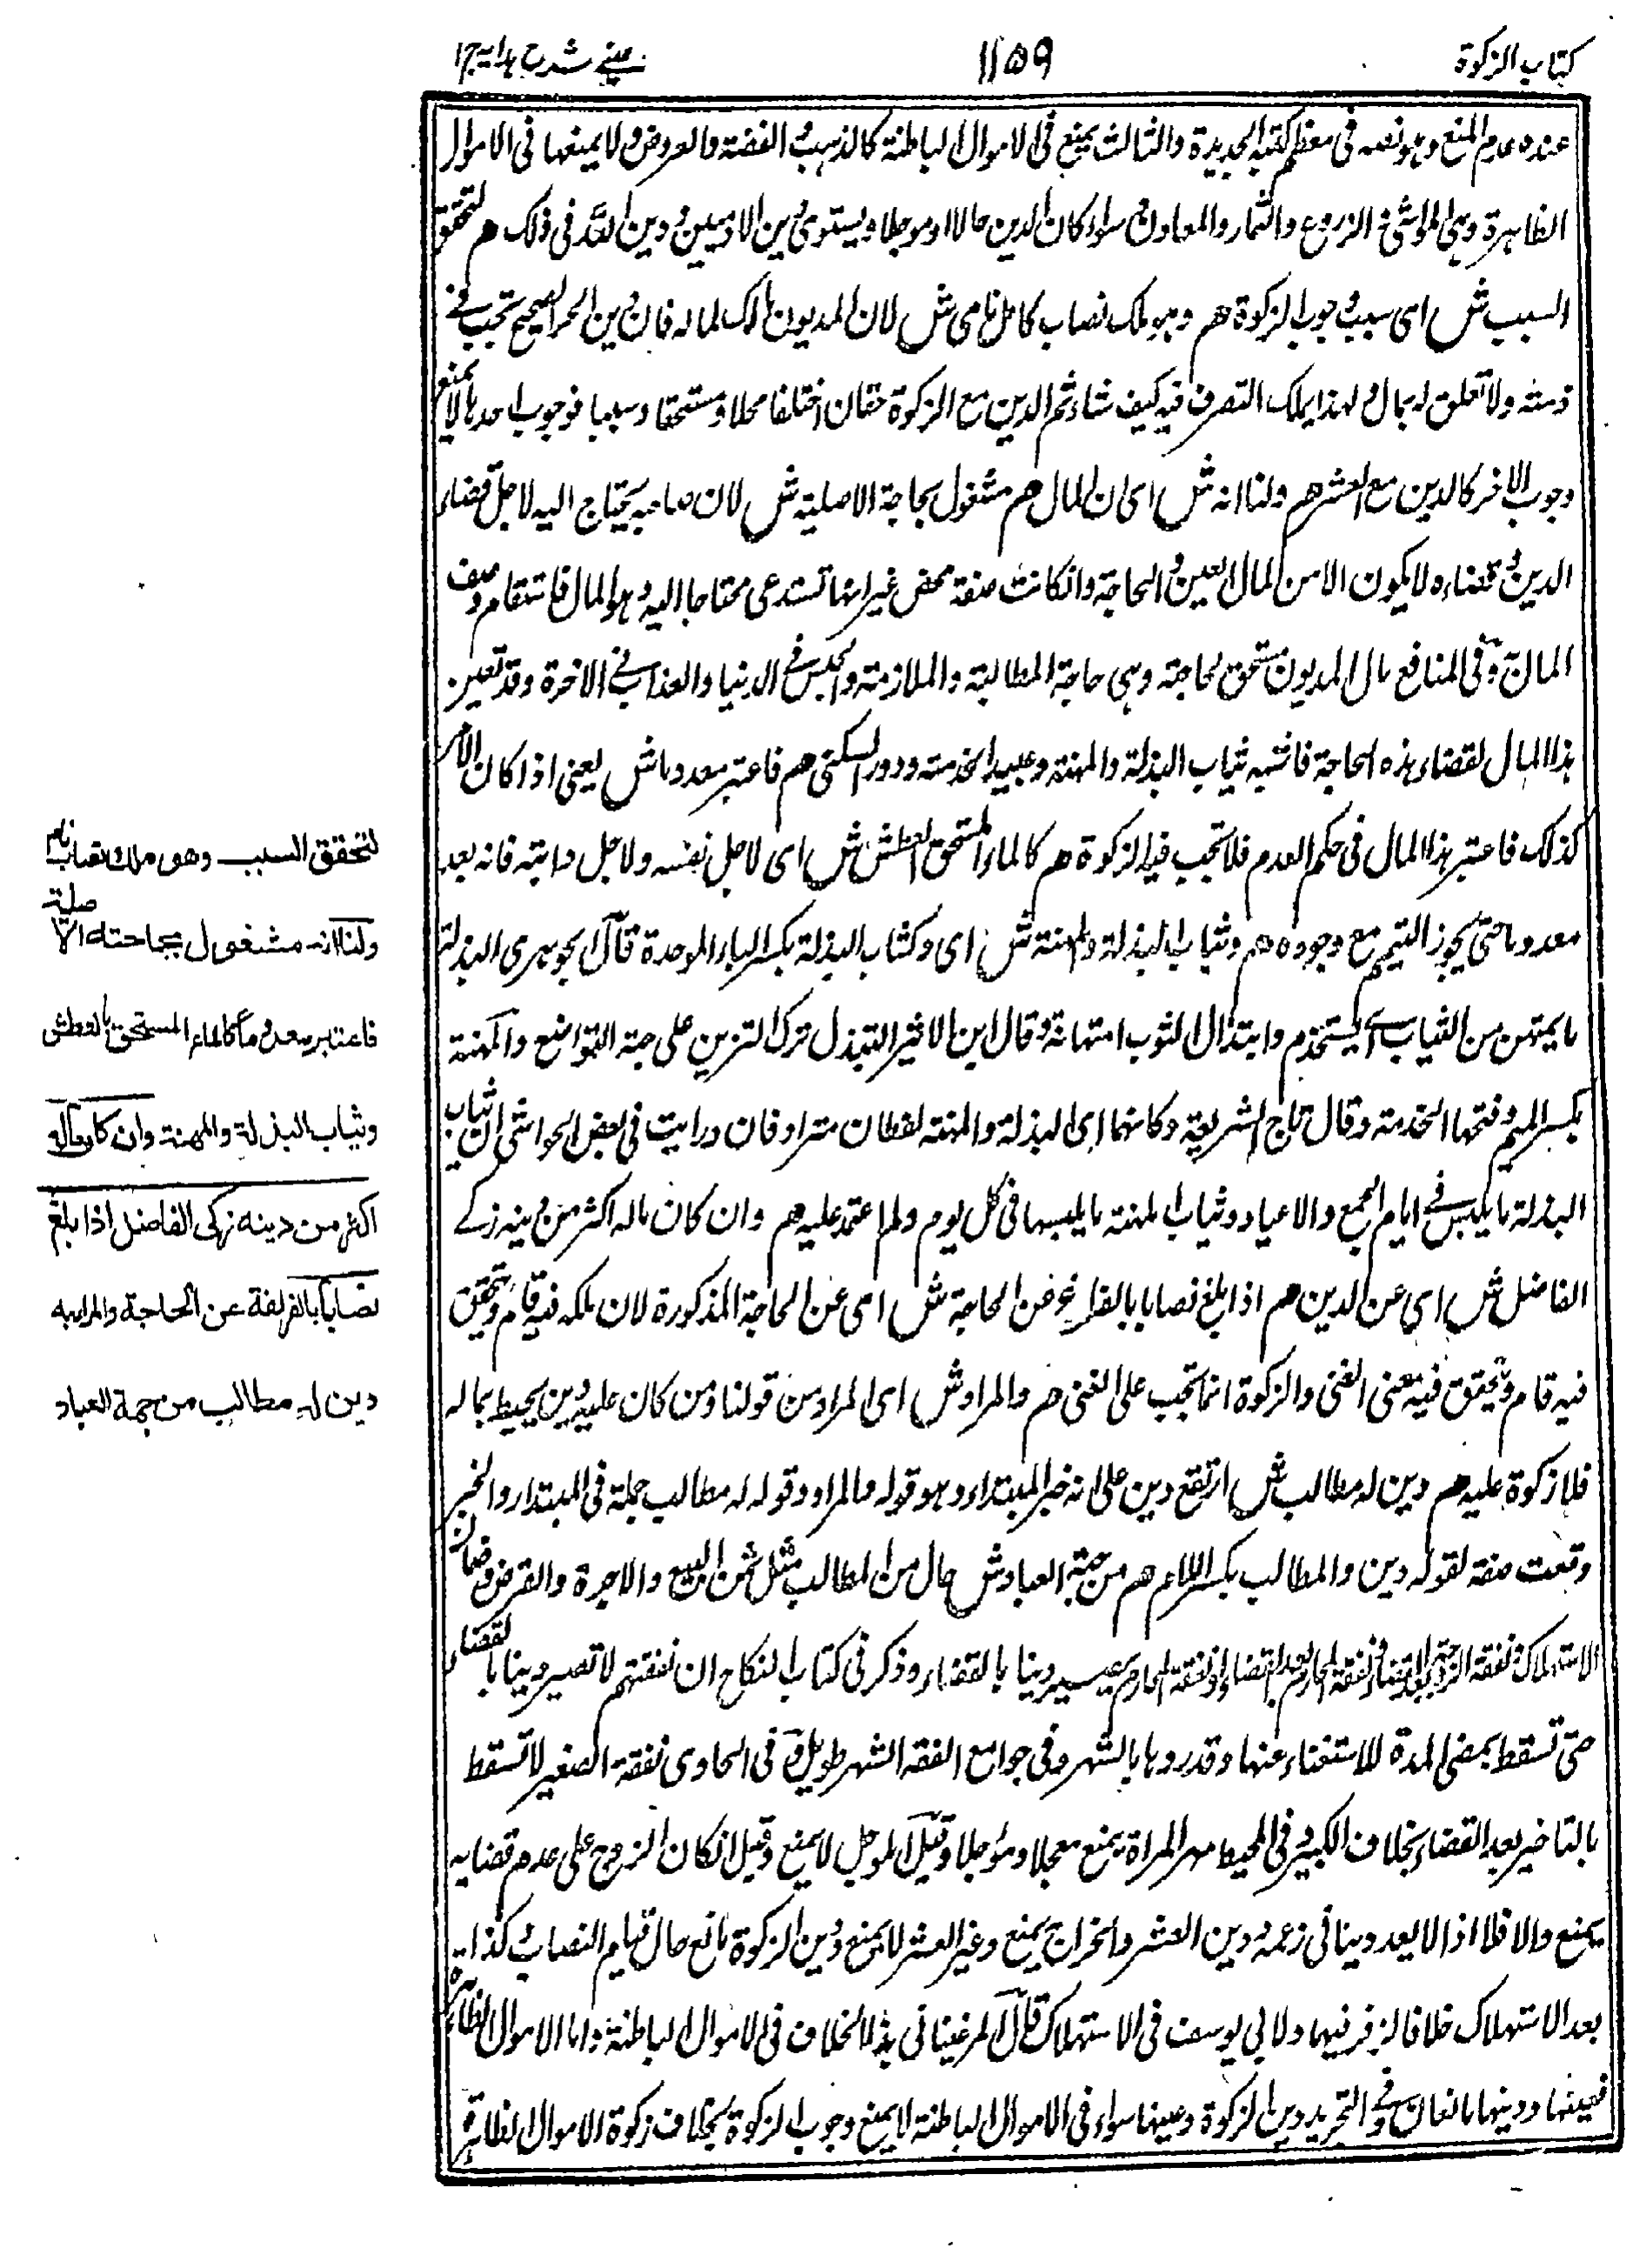 كتاب الزكوة
١١٥٩
عينى شرح هدايه ج ١
عنده عدم المنع وهو نصه فى معظم كتبه الجديدة والثالث يمنع فى الاموال الباطنة كالذهب والفضة والعروض ولا يمنعها فى الاموال
الظاهرة وهى المواشى والزروع والثمار والمعادن سواء كان الدين حالا او موجلا ويستوى دين الادميين ودين الله فى ذلك هم لتحقق
السبب ش اى سبب وجوب الزكوة هم وهو ملك نصاب كامل نامى ش لان المديون مالك لماله فان دين الحر الصحيح تجب فى
ذمته ولا تعلق له بماله ولهذا يملك التصرف فيه كيف شاء ثم الدين مع الزكوة حقان اختلفا محلا ومستحقا وسببا فوجوب احدهما لا يمنع
وجوب الاخر كالدين مع العشر هم ولنا انه ش اى ان المال هم مشغول بحاجة الاصلية ش لان صاحبه يحتاج اليه لاجل قضاء
الدين وقضاءه لا يكون الا من المال العين والحاجة وانكانت صفة محض غير انها تستدعى محتاجا اليه وهو المال فاستقام وصف
المال وفى المنافع مال المديون مستحق لحاجته وهى حاجة المطالبة والملازمة والحبس فى الدنيا والعذاب فى الاخرة وقد تعين
هذا المال لقضاء هذه الحاجة فاشبه ثياب البذلة والمهنة وعبيد الخدمة ودور السكنى هم فاعتبر معدوما ش يعنى اذا كان الامر
كذلك فاعتبر هذا المال فى حكم العدم فلا تجب فيه الزكوة هم كالماء المستحق العطش ش اى لاجل نفسه ولاجل دابته فانه يعد
معدوما حتى يجوز التيمم مع وجوده هم وثياب البذلة والمهنة ش اى وكثياب البذلة بكسر الباء الموحدة قال الجوهرى البذلة
ما يمتهن من الثياب اى يستخدم وابتذال الثوب امتهانة وقال ابن الاثير التبذل ترك التزين على جهة التواضع والمهنة
بكسر الميم وفتحها الخدمة وقال تاج الشريعة وكانهما اى البذلة والمهنة لفظان مترادفان ورايت فى بعض الحواشى ان ثياب
البذلة ما يلبس فى ايام الجمع والاعياد وثياب المهنة ما يلبسها فى كل يوم ولم اعتمد عليه هم وان كان ماله اكثر من دينه زكى
الفاضل ش اى عن الدين هم اذا بلغ نصابا بالفراغ عن الحاجة ش اى عن الحاجة المذكورة لان ملكه فيه قام وتحقق
فيه قام وتحقق فيه معنى الغنى والزكوة انما تجب على الغنى هم والمراد ش اى المراد من قولنا ومن كان عليه دين يحيط بماله
فلا زكوة عليه هم دين له مطالب ش ارتفع دين على انه خبر المبتداء وهو قوله والمراد وقوله له مطالب جملة فى المبتداء والخبر
وقعت صفة لقوله دين والمطالب بكسر اللام هم من جهة العباد ش حال من المطالب مثل ثمن المبيع والاجرة والقرض وضمان
الاستهلاك ونفقة الزوجة بعد القضاء ونفقة المحارم بعد القضاء اذ نفقة المحارم يصير دينا بالقضاء وذكر فى كتاب النكاح ان نفقتهم لا تصير دينا بالقضاء
حتى تسقط بمضى المدة للاستغناء عنها وقدروها بالشهر وفى جوامع الفقه الشهر طويل وفى الحاوى نفقة الصغير لا تسقط
بالتاخير بعد القضاء بخلاف الكبير وفى المحيط مهر المراة يمنع معجلا ومؤجلا وقيل المؤجل لا يمنع وقيل انكان الزوج على عدم قضايه
يمنع والا فلا اذ لا يعد دينا فى زعمه ودين العشر والخراج يمنع وغير العشر لا يمنع ودين الزكوة مانع حال قيام النصاب وكذا
بعد الاستهلاك خلافا لزفر فيهما ولابى يوسف فى الاستهلاك قال المرغينانى هذا الخلاف فى الاموال الباطنة واما الاموال الظاهرة
فعينها ودينها مانعان وفى التجريد دين الزكوة وعينها سواء فى الاموال الباطنة لا يمنع وجوب الزكوة بخلاف زكوة الاموال الظاهرة
لتحقق السبب وهو ملك نصاب نام
ولنا انه مشغول بحاجته الاصلية
فاعتبر معدوما كالماء المستحق بالعطش
وثياب البذلة والمهنة وان كان ماله
اكثر من دينه زكى الفاضل اذا بلغ
نصابا بالفراغة عن الحاجة والمراد به
دين له مطالب من جهة العباد